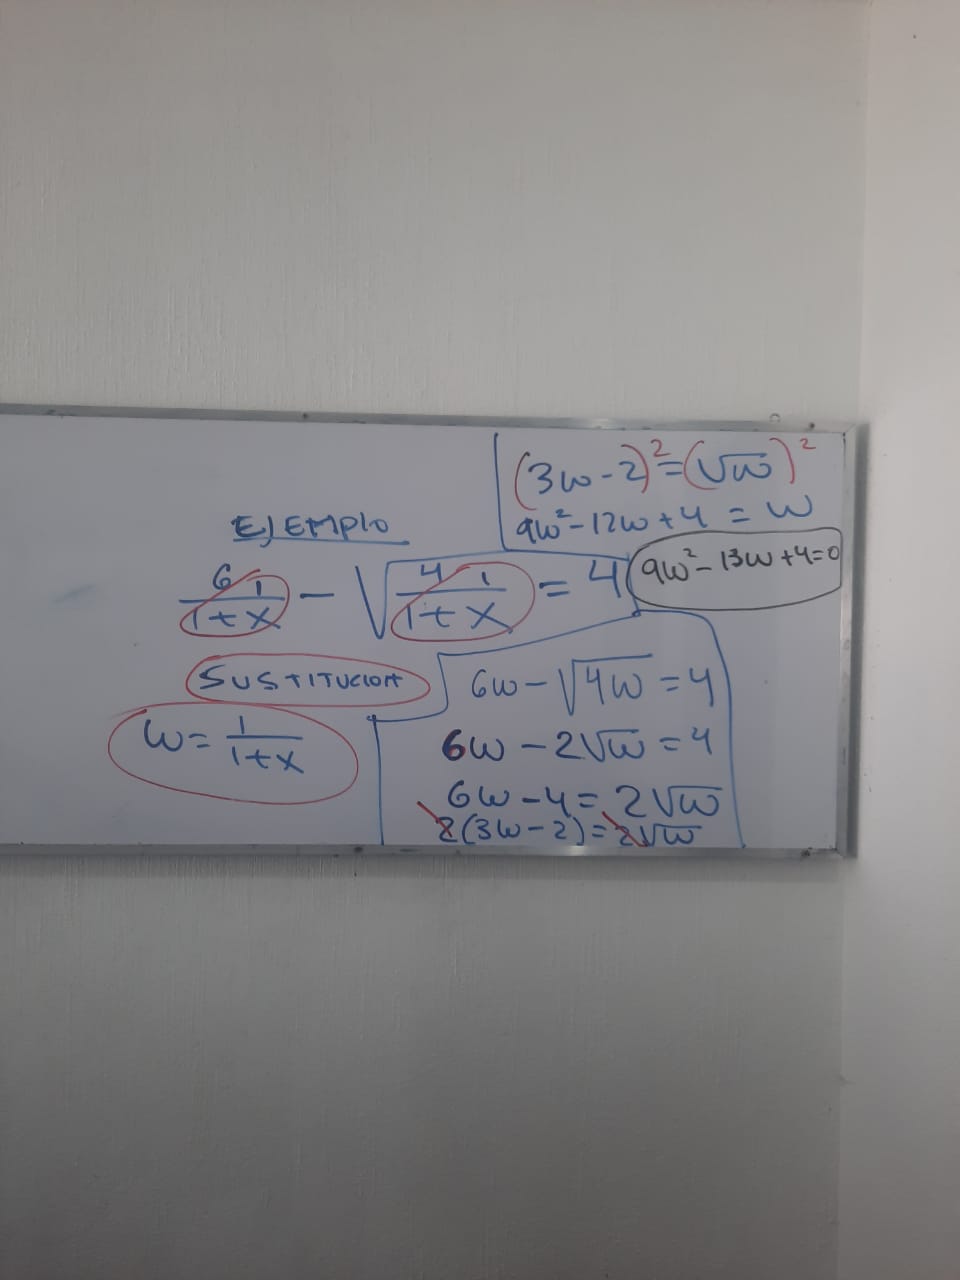 EJEMPLO
6 1/(1+x) - √(4 1/(1+x)) = 4
SUSTITUCION
w = 1/(1+x)
6w - √(4w) = 4
6w - 2√w = 4
6w - 4 = 2√w
2(3w - 2) = 2√w
(3w - 2)² = (√w)²
9w² - 12w + 4 = w
9w² - 13w + 4 = 0